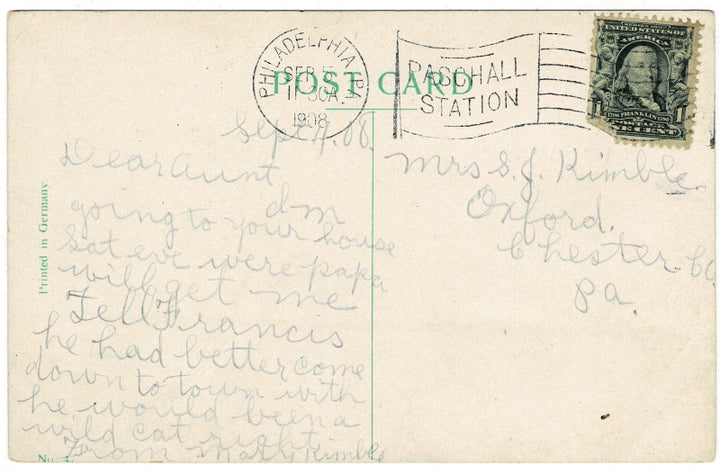 PHILADELPHIA, PA.
SEP
11 30A.
1908
PASCHALL
STATION
POST CARD
UNITED STATES OF
AMERICA
1 FRANKLIN 1
ONE CENT
Printed in Germany
Sept 4. 08.
Dear Aunt
going to your house
Sat eve were papa
will get me
Tell Francis
he had better come
down to town with
he would been a
wild cat right
From Mary Kimble
Mrs S. J. Kimble
Oxford.
Chester Co
Pa.